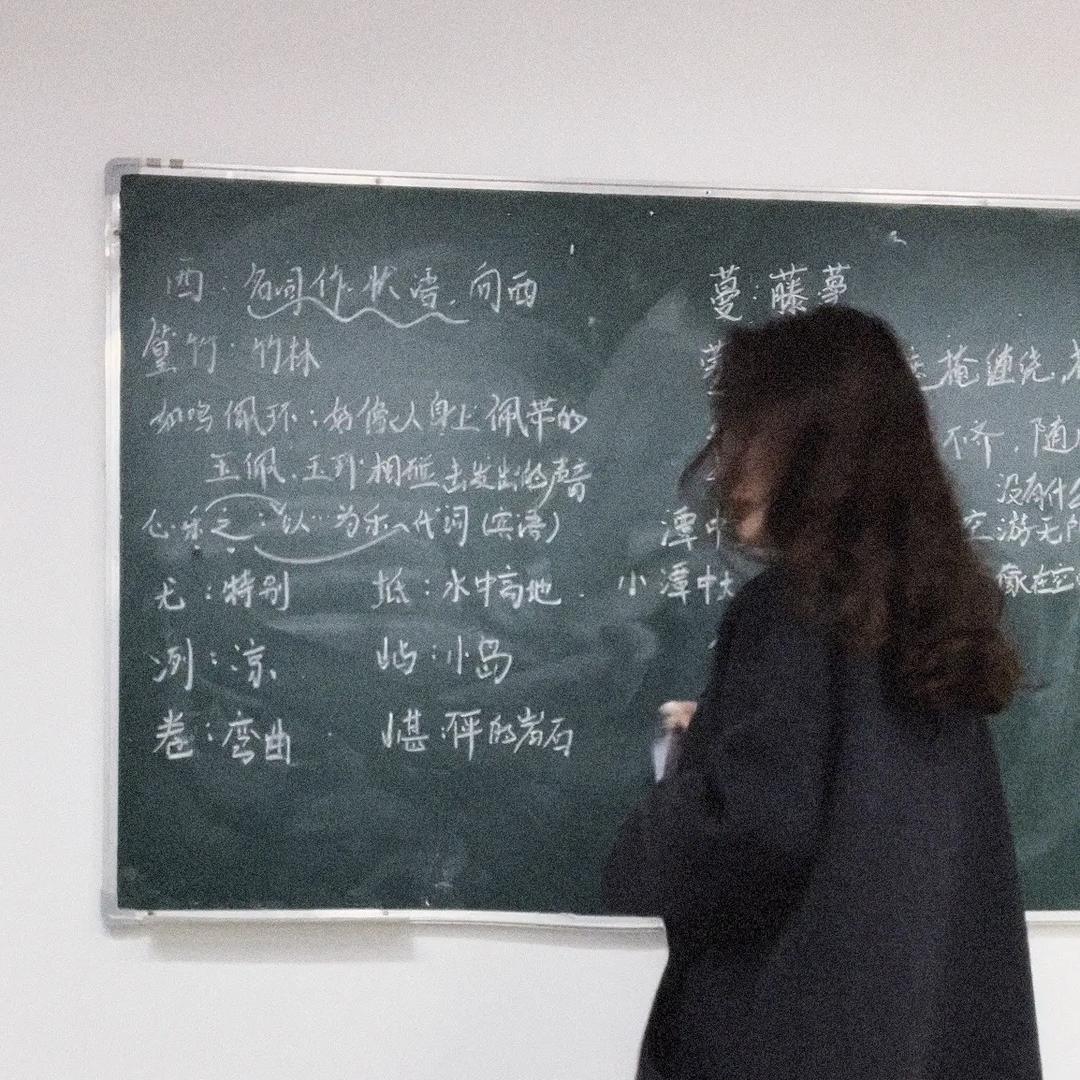 西：名词作状语，向西
篁竹：竹林
如鸣佩环：好像人身上佩带的
玉佩、玉环相碰击发出的声音
心乐之：以…为乐 代词（宾语）
尤：特别 坻：水中高地．
冽：凉 屿：小岛
卷：弯曲． 嵁：不平的岩石
蔓：藤蔓
掩缠绕，
不齐，随
没有什么
潭中 游无
小潭中 像在空